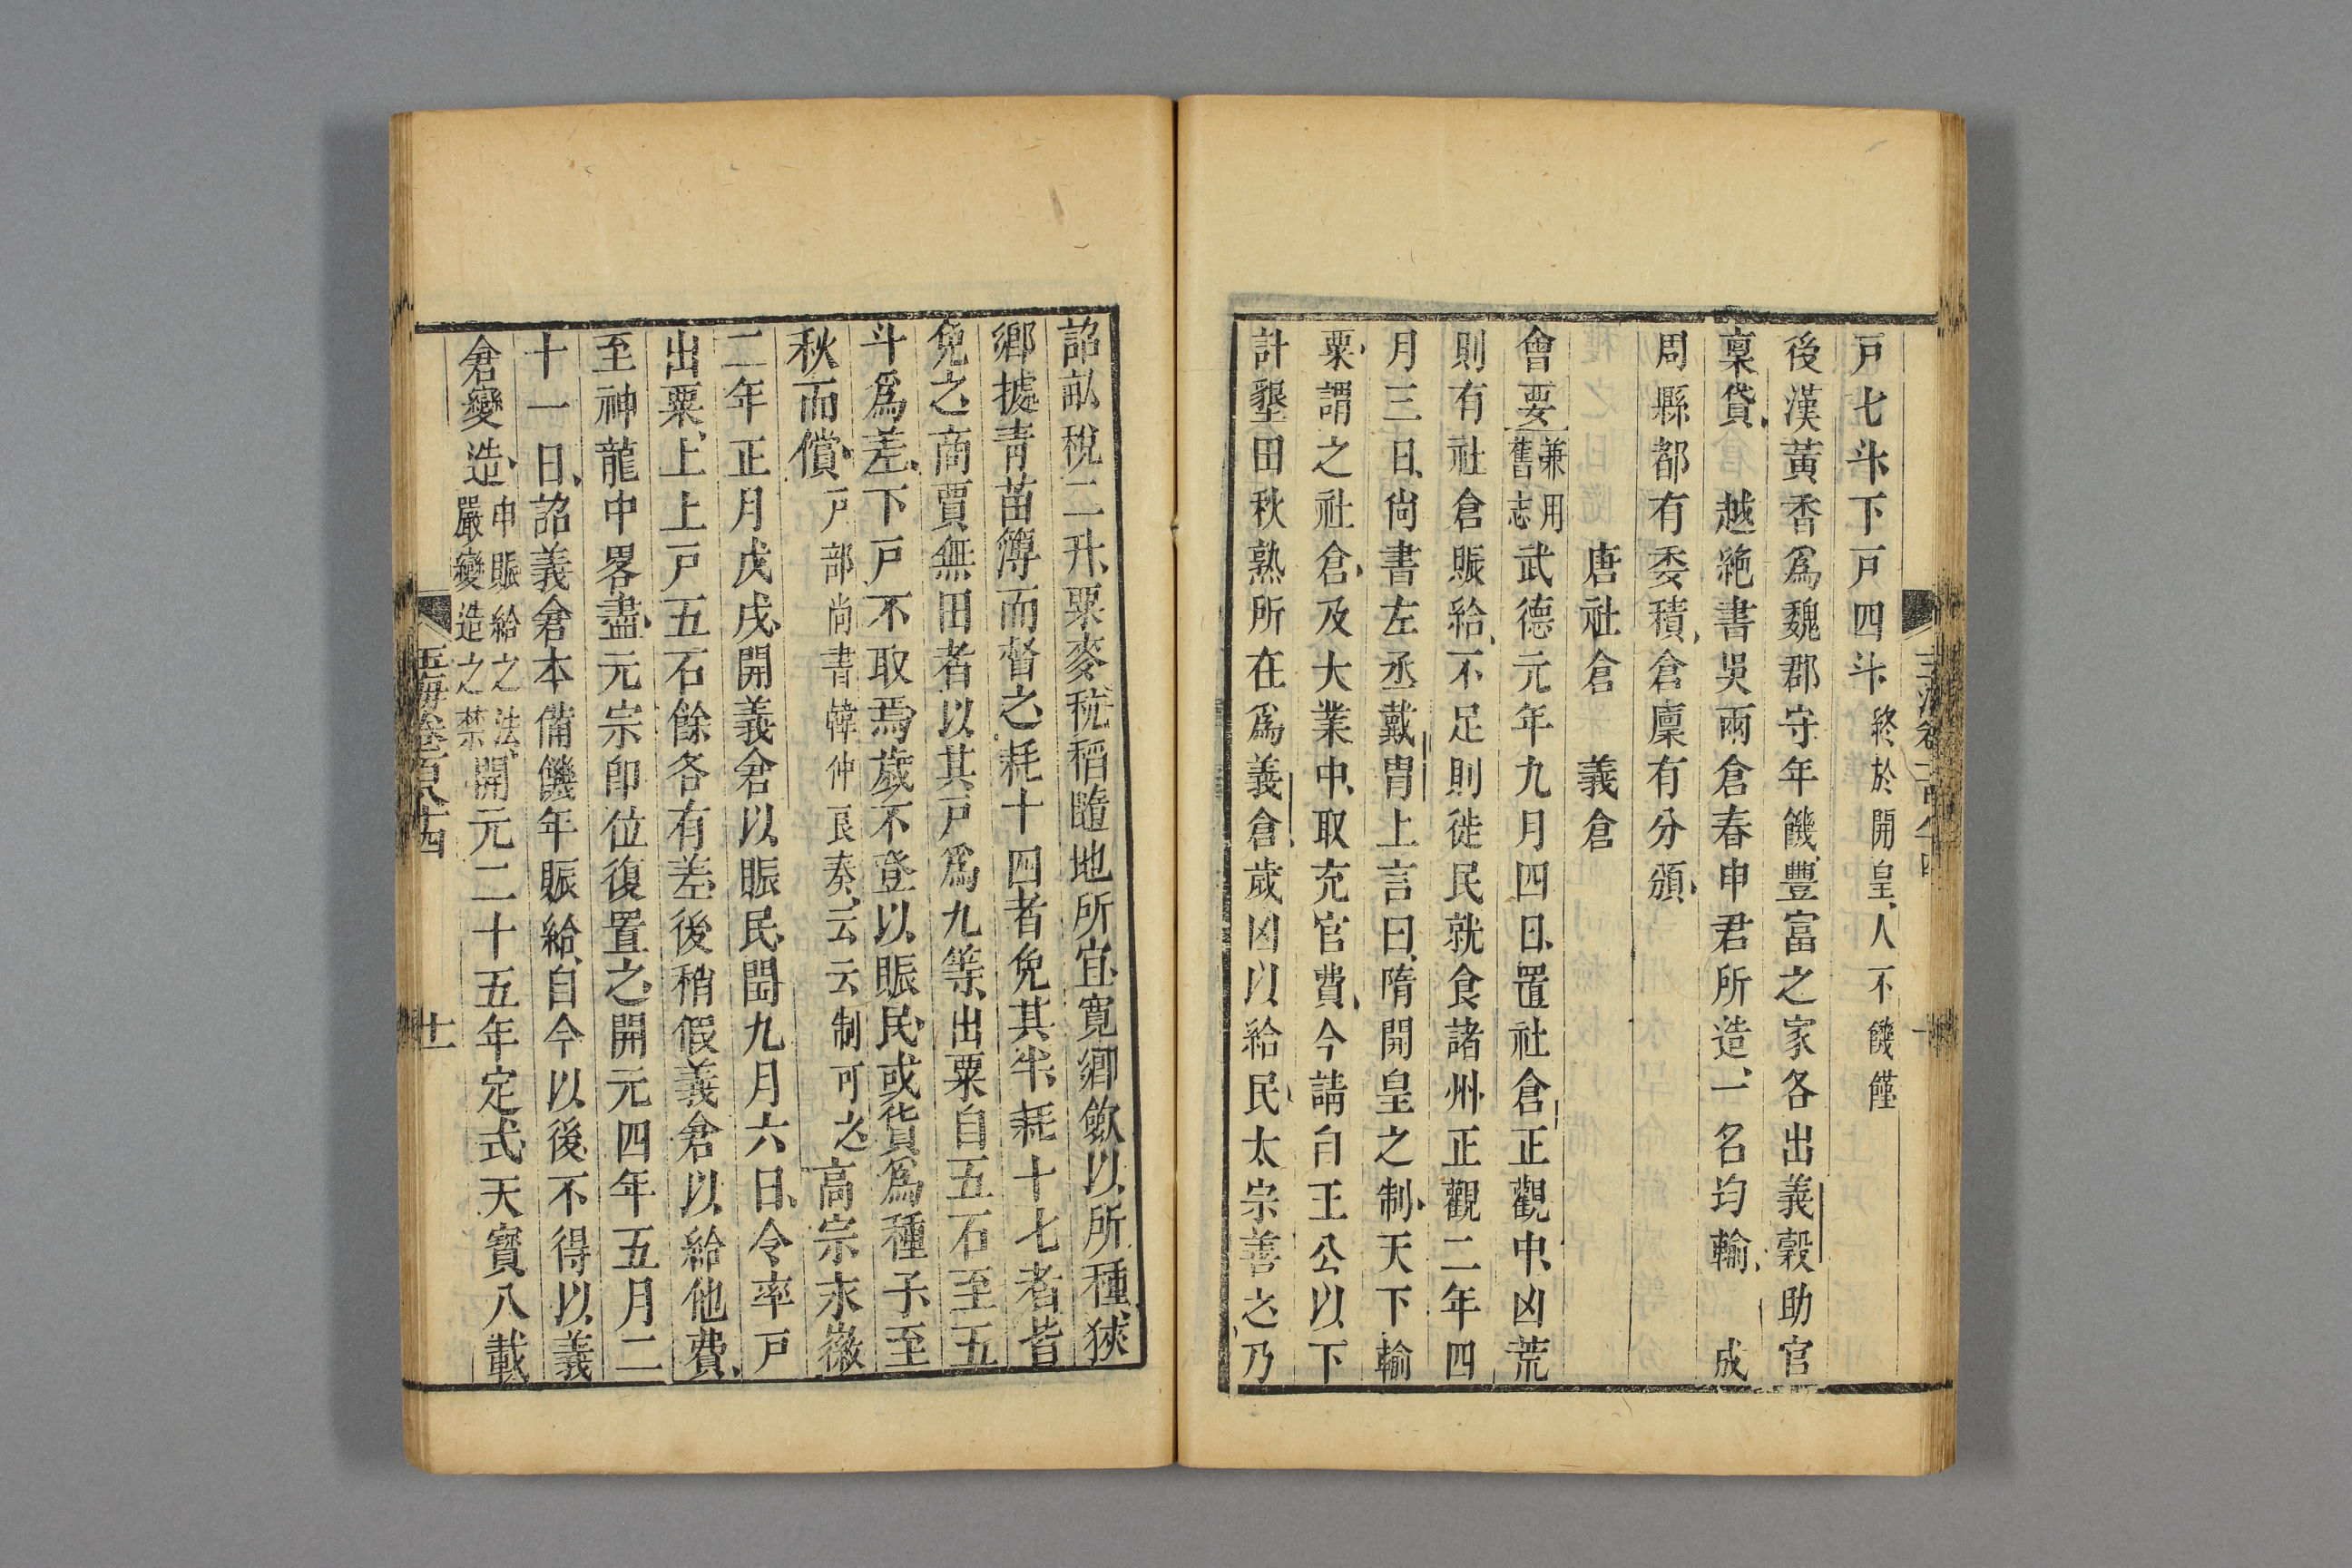 戸七斗下戸四斗終於開皇人不饑饉
後漢黃香爲魏郡守年饑豐富之家各出義穀助官
稟貸　越絶書吳兩倉春申君所造一名均輸　成
周縣都有委積倉廩有分頒
唐社倉　義倉
會要兼用舊志武德元年九月四日置社倉正觀中凶荒
則有社倉賑給不足則徙民就食諸州正觀二年四
月三日尚書左丞戴胄上言曰隋開皇之制天下輸
粟謂之社倉及大業中取充官費今請自王公以下
計墾田秋熟所在爲義倉歲凶以給民太宗善之乃
詔畝稅二升粟麥秔稻隨地所宜寬鄉斂以所種狹
鄉據青苗簿而督之耗十四者免其半耗十七者皆
免之商賈無田者以其戸爲九等出粟自五石至五
斗爲差下戸不取焉歲不登以賑民或貸爲種子至
秋而償戸部尚書韓仲良奏云云制可之高宗永徽
二年正月戊戌開義倉以賑民閏九月六日令率戸
出粟上上戸五石餘各有差後稍假義倉以給他費
至神龍中畧盡元宗即位復置之開元四年五月二
十一日詔義倉本備饑年賑給自今以後不得以義
倉變造申賑給之法嚴變造之禁開元二十五年定式天寳八載
玉海卷百八十四
十一